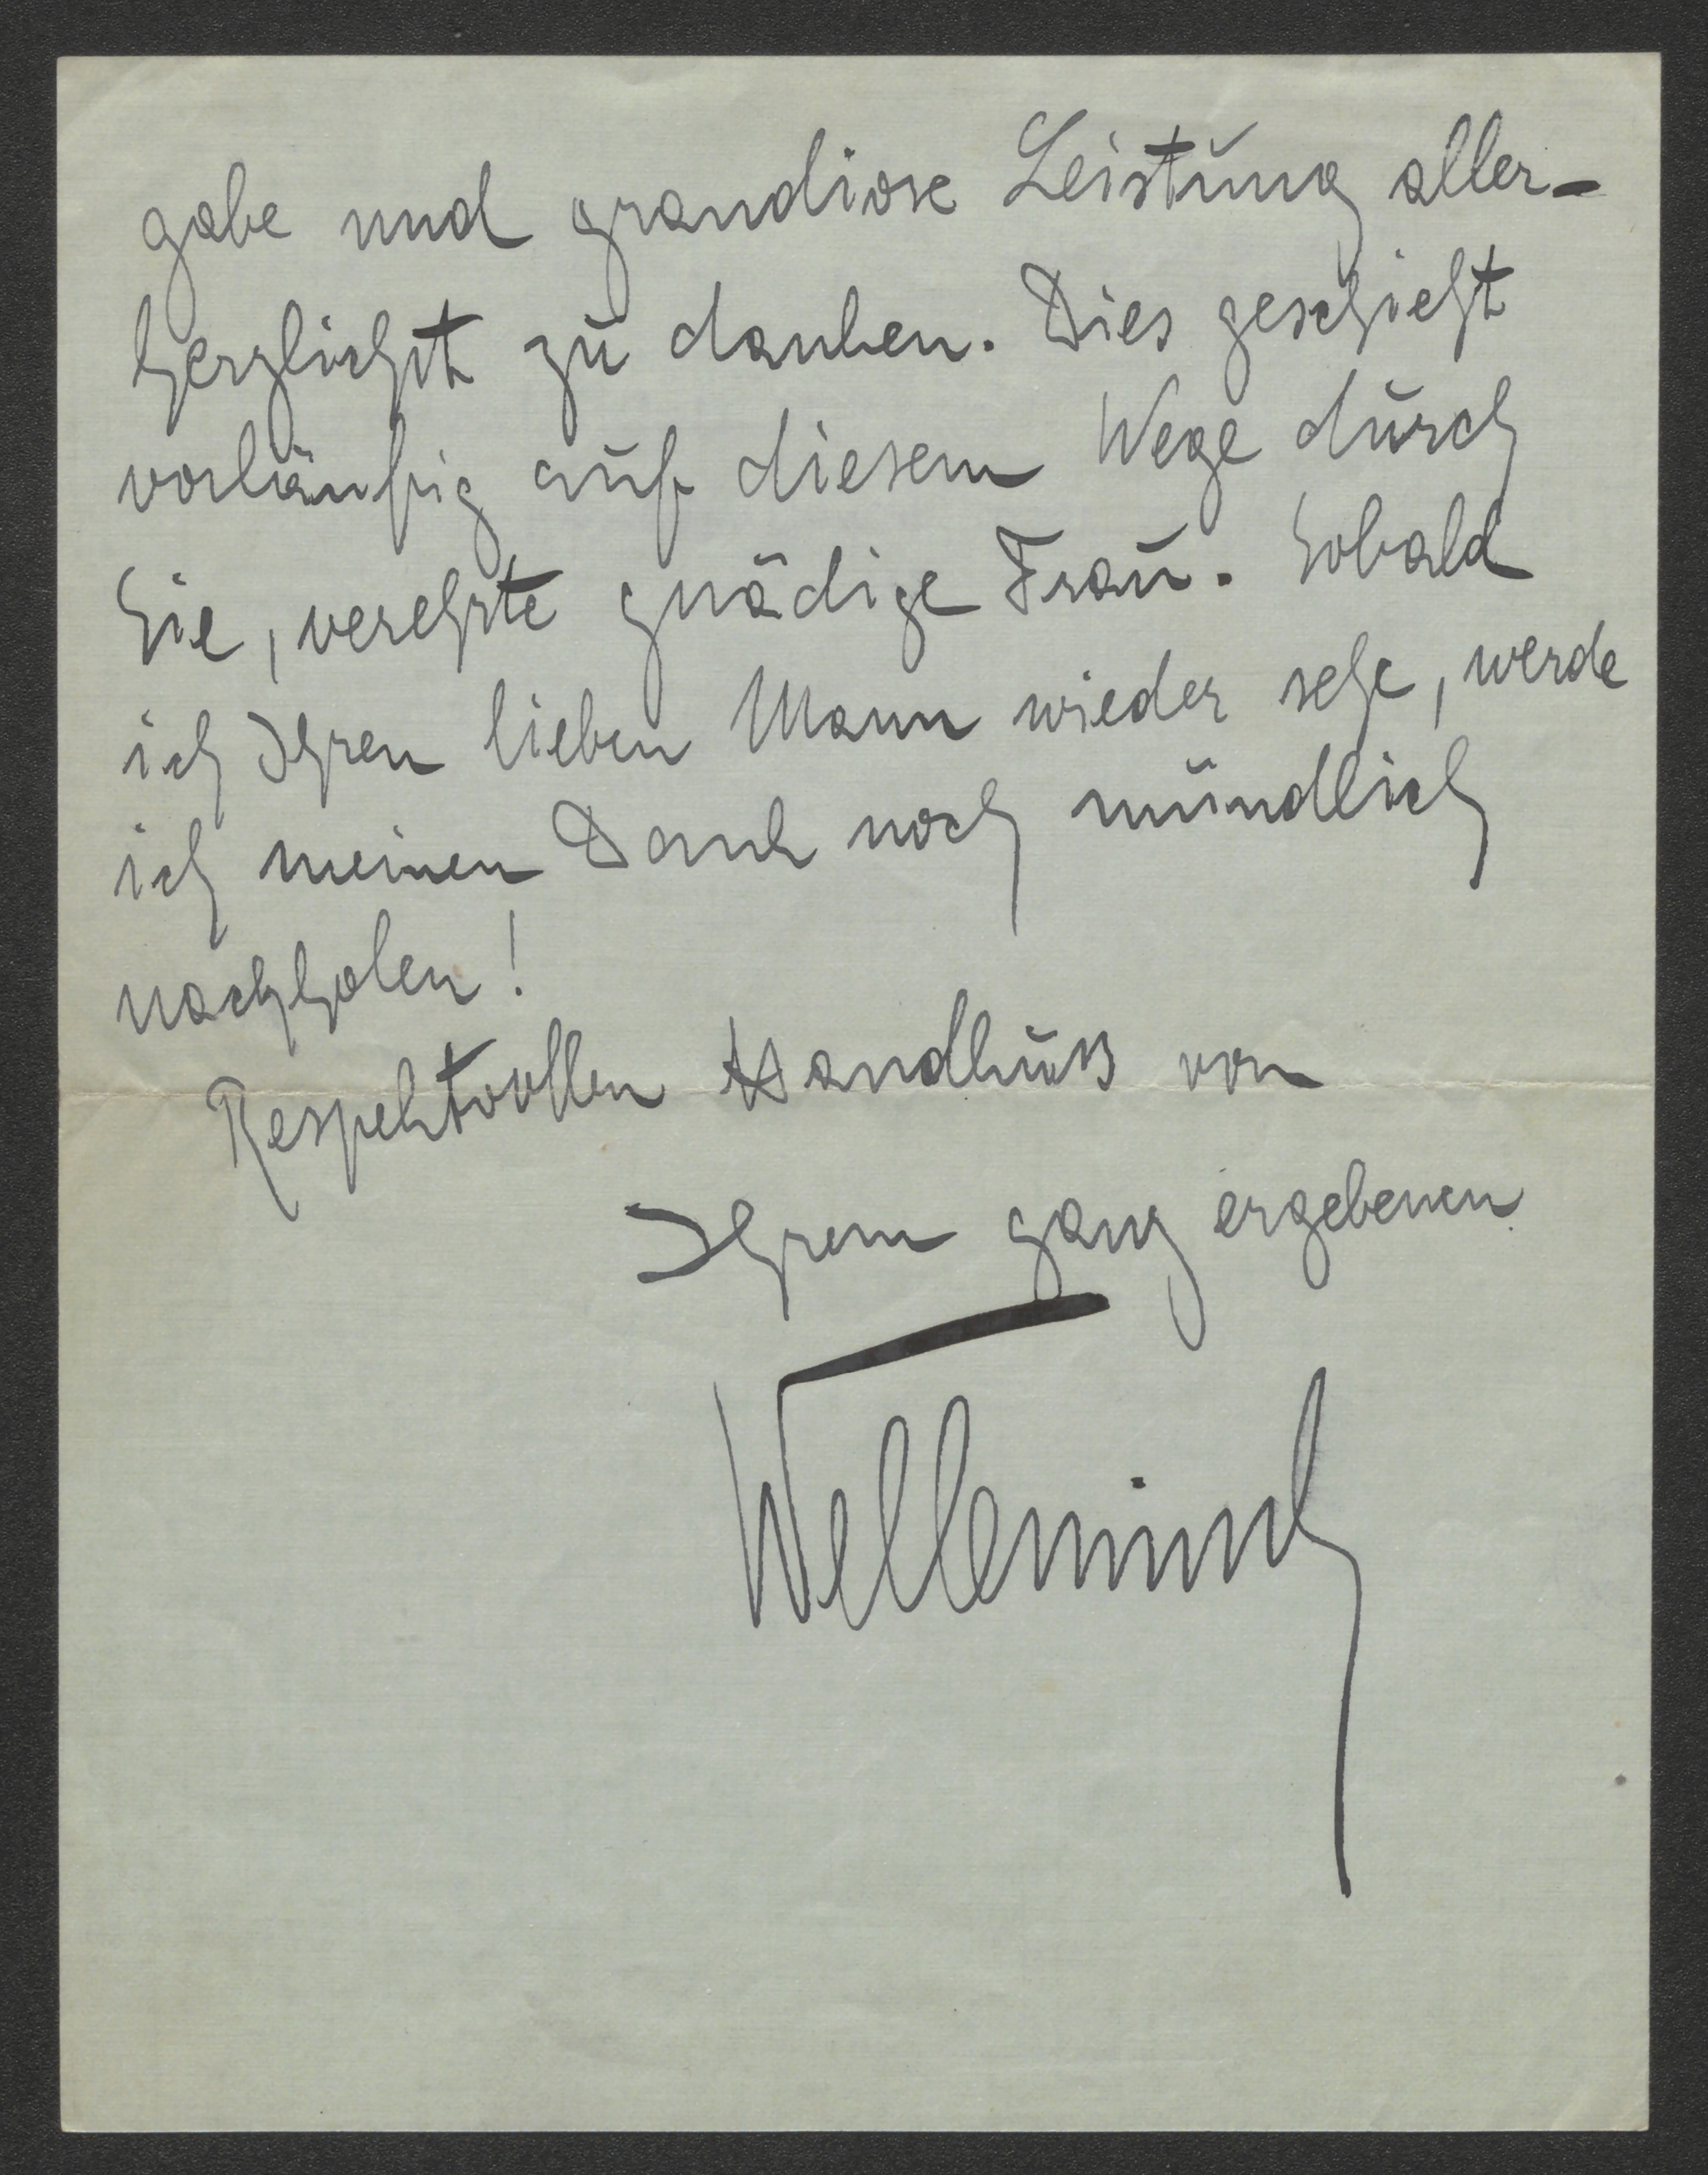 gabe und grandiose Leistung aller-
herzlichst zu danken. Dies geschieht
vorläufig auf diesem Wege durch
Sie, verehrte gnädige Frau. Sobald
ich Ihren lieben Mann wieder sehe, werde
ich meinen Dank noch mündlich
nachholen!
Respektvollen Handkuss von
Ihrem ganz ergebenen
Welleminsky